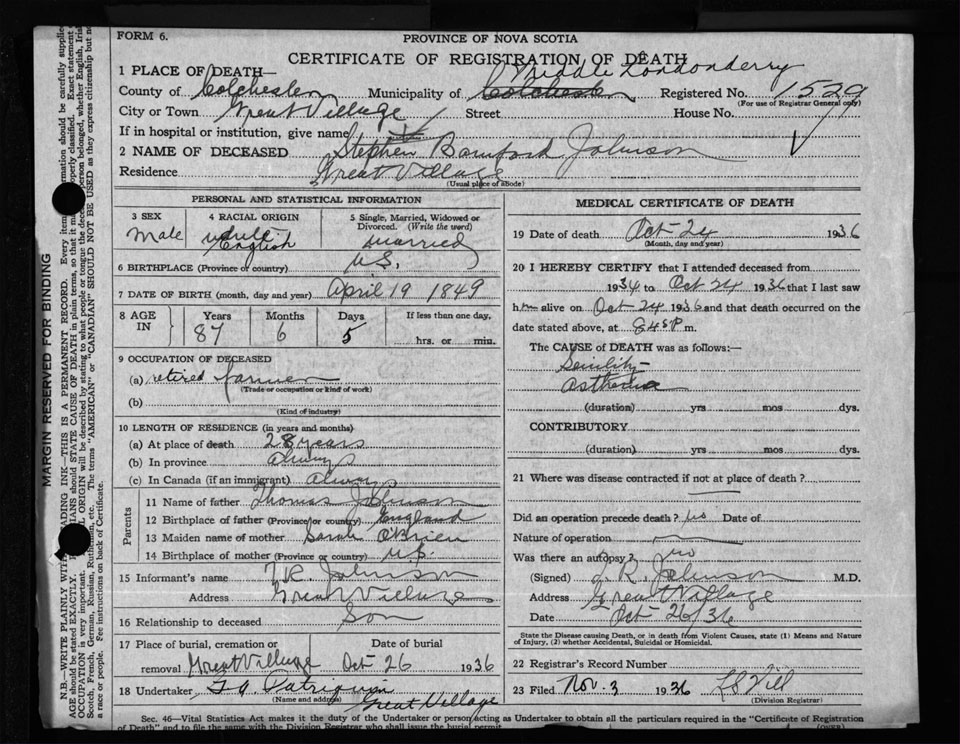 FORM 6.
PROVINCE OF NOVA SCOTIA
CERTIFICATE OF REGISTRATION OF DEATH
Middle Londonderry
1 PLACE OF DEATH—
County of Colchester Municipality of Colchester Registered No. 1529
(For use of Registrar General only)
City or Town Great Village Street House No.
If in hospital or institution, give name
2 NAME OF DECEASED Stephen Bamford Johnson
Residence Great Village
(Usual place of abode)
PERSONAL AND STATISTICAL INFORMATION
3 SEX 4 RACIAL ORIGIN 5 Single, Married, Widowed or Divorced. (Write the word)
Male English married
6 BIRTHPLACE (Province or country) N.S.
7 DATE OF BIRTH (month, day and year) April 19 1849
8 AGE IN Years Months Days If less than one day,
87 6 5 hrs. or min.
9 OCCUPATION OF DECEASED
(a) retired farmer
(Trade or occupation or kind of work)
(b)
(Kind of industry)
10 LENGTH OF RESIDENCE (in years and months)
(a) At place of death 28 years
(b) In province always
(c) In Canada (if an immigrant) always
Parents
11 Name of father Thomas Johnson
12 Birthplace of father (Province or country) England
13 Maiden name of mother Sarah O'Brien
14 Birthplace of mother (Province or country) N.S.
15 Informant's name T.R. Johnson
Address Great Village
16 Relationship to deceased Son
17 Place of burial, cremation or Date of burial
removal Great Village Oct 26 1936
18 Undertaker Patriquin
(Name and address) Great Village
MEDICAL CERTIFICATE OF DEATH
19 Date of death Oct 24 1936
(Month, day and year)
20 I HEREBY CERTIFY that I attended deceased from
1934 to Oct 24 1936 that I last saw
him alive on Oct 24 1936 and that death occurred on the
date stated above, at 845P m.
The CAUSE of DEATH was as follows:—
Senility
asthenia
(duration) yrs mos dys.
CONTRIBUTORY
(duration) yrs mos dys.
21 Where was disease contracted if not at place of death?
Did an operation precede death? no Date of
Nature of operation
Was there an autopsy? no
(Signed) T. R. Johnson M.D.
Address Great Village
Date Oct 26/36
State the Disease causing Death, or in death from Violent Causes, state (1) Means and Nature
of Injury, (2) whether Accidental, Suicidal or Homicidal.
22 Registrar's Record Number
23 Filed Nov. 3 1936
(Division Registrar)
Sec. 46—Vital Statistics Act makes it the duty of the Undertaker or person acting as Undertaker to obtain all the particulars required in the "Certificate of Registration
of Death" and to file the same with the Division Registrar who shall issue the burial permit
(OVER)
MARGIN RESERVED FOR BINDING
N.B.—WRITE PLAINLY WITH FADING INK—THIS IS A PERMANENT RECORD. Every item information should be carefully supplied
AGE should be stated EXACTLY. should STATE CAUSE OF DEATH in plain terms, so that it may properly classified. Exact statement
OCCUPATION is very important. ORIGIN will be described by stating to what people or tongue the deceased person belonged, whether English, Irish
Scotch, French, German, Russian, Ruthenian, etc. The terms "AMERICAN" or "CANADIAN" SHOULD NOT BE USED as they express citizenship but not
a race or people. See instructions on back of Certificate.